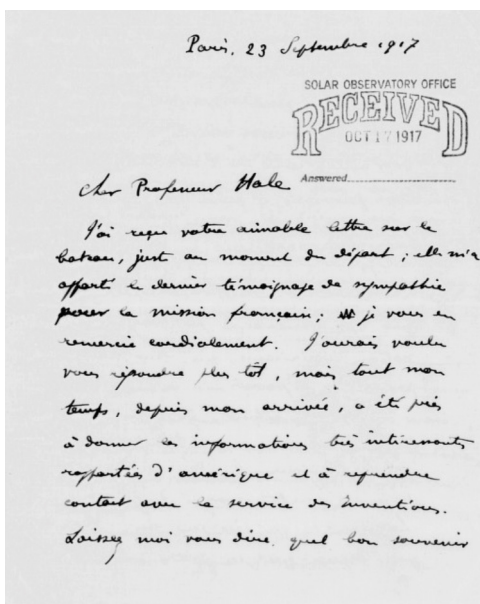 Paris, 23 Septembre 1917
SOLAR OBSERVATORY OFFICE
RECEIVED
OCT 17 1917
Answered
Cher Professeur Hale
J'ai reçu votre aimable lettre sur le
bateau, just au moment du départ ; elle m'a
apporté le dernier témoignage de sympathie
pour la mission français ; je vous en
remercie cordialement. J'aurais voulu
vous répondre plus tôt, mais tout mon
temps, depuis mon arrivée, a été pris
à donner les informations très intéressants
rapportées d'amérique et à reprendre
contact avec le service des Inventions.
Laissez moi vous dire quel bon souvenir